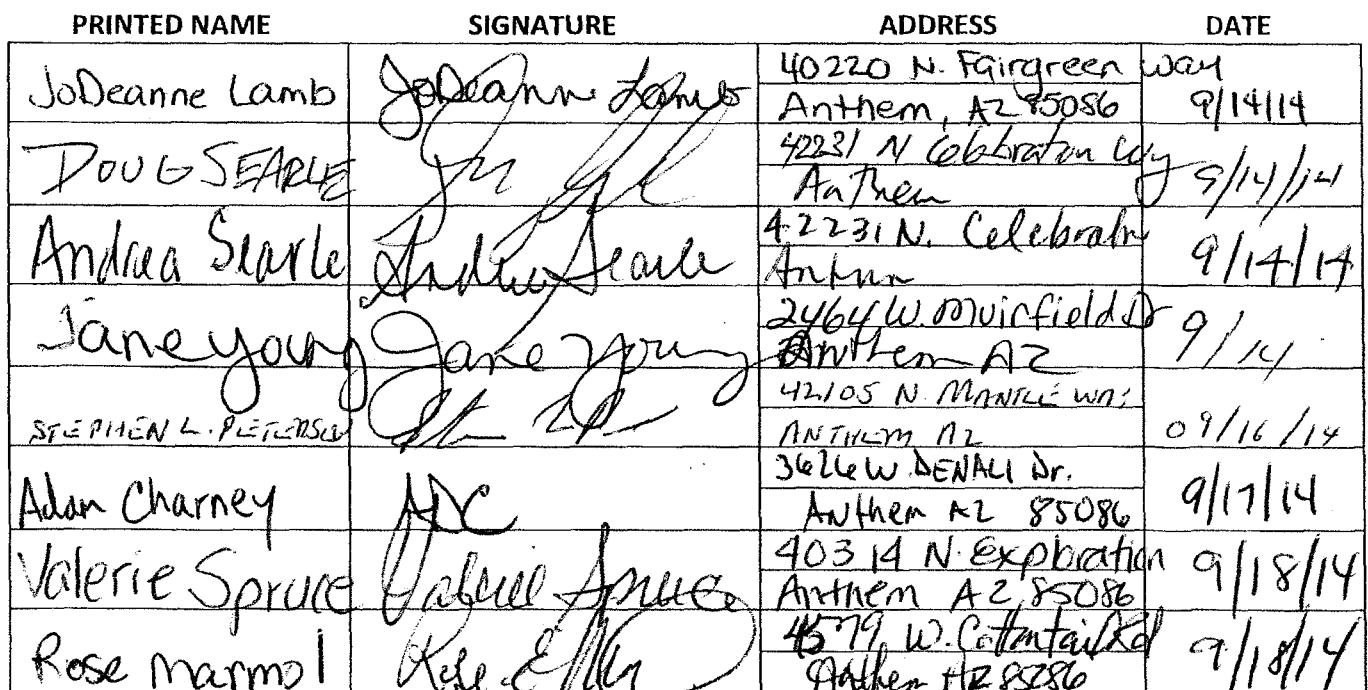 PRINTED NAME SIGNATURE ADDRESS DATE
JoDeanne Lamb JoDeanne Lamb 40220 N. Fairgreen Way
Anthem, AZ 85086 9/14/14
DOUG SEARLE 42231 N Celebration Wy
Anthem 9/14/14
Andrea Searle Andrea Searle 42231 N. Celebratn
Anthem 9/14/14
Jane Young Jane Young 2464 W. Muirfield Dr
Anthem AZ 9/14
STEPHEN L. PETERSON 42105 N. MANTLE WAY
ANTHEM AZ 09/16/14
Adam Charney ADC 3626 W. DENALI Dr.
Anthem AZ 85086 9/17/14
Valerie Spruce Valerie Spruce 40314 N. Exploration
Anthem AZ 85086 9/18/14
Rose Marmol Rose W. Cottontail Rd
Anthem AZ 9/18/14